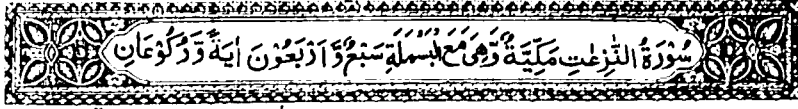 سُوْرَةُ النّٰزِعٰتِ مَكِّيَّةٌ وَّهِىَ مَعَ الْبَسْمَلَةِ سَبْعٌ وَّ اَرْبَعُوْنَ اٰيَةً وَّرُكُوْعَانِ